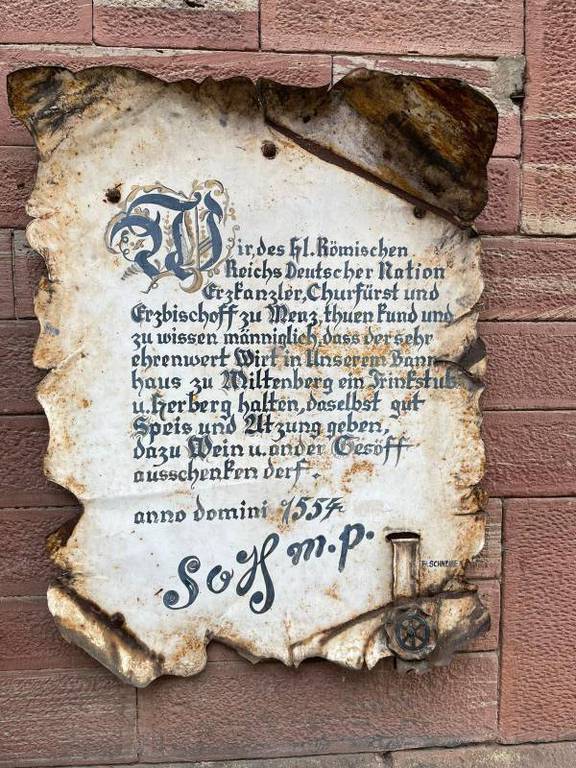 Wir, des hl. Römischen
Reichs Deutscher Nation
Erzkanzler, Churfürst und
Erzbischoff zu Menz, thuen kund und
zu wissen männiglich, dass der sehr
ehrenwert Wirt in Unserem Bann
haus zu Miltenberg ein Trinkstub
u. Herberg halten, daselbst gut
Speis und Atzung geben,
dazu Wein u. ander Gesöff
ausschenken derf.
anno domini 1554
m.p.